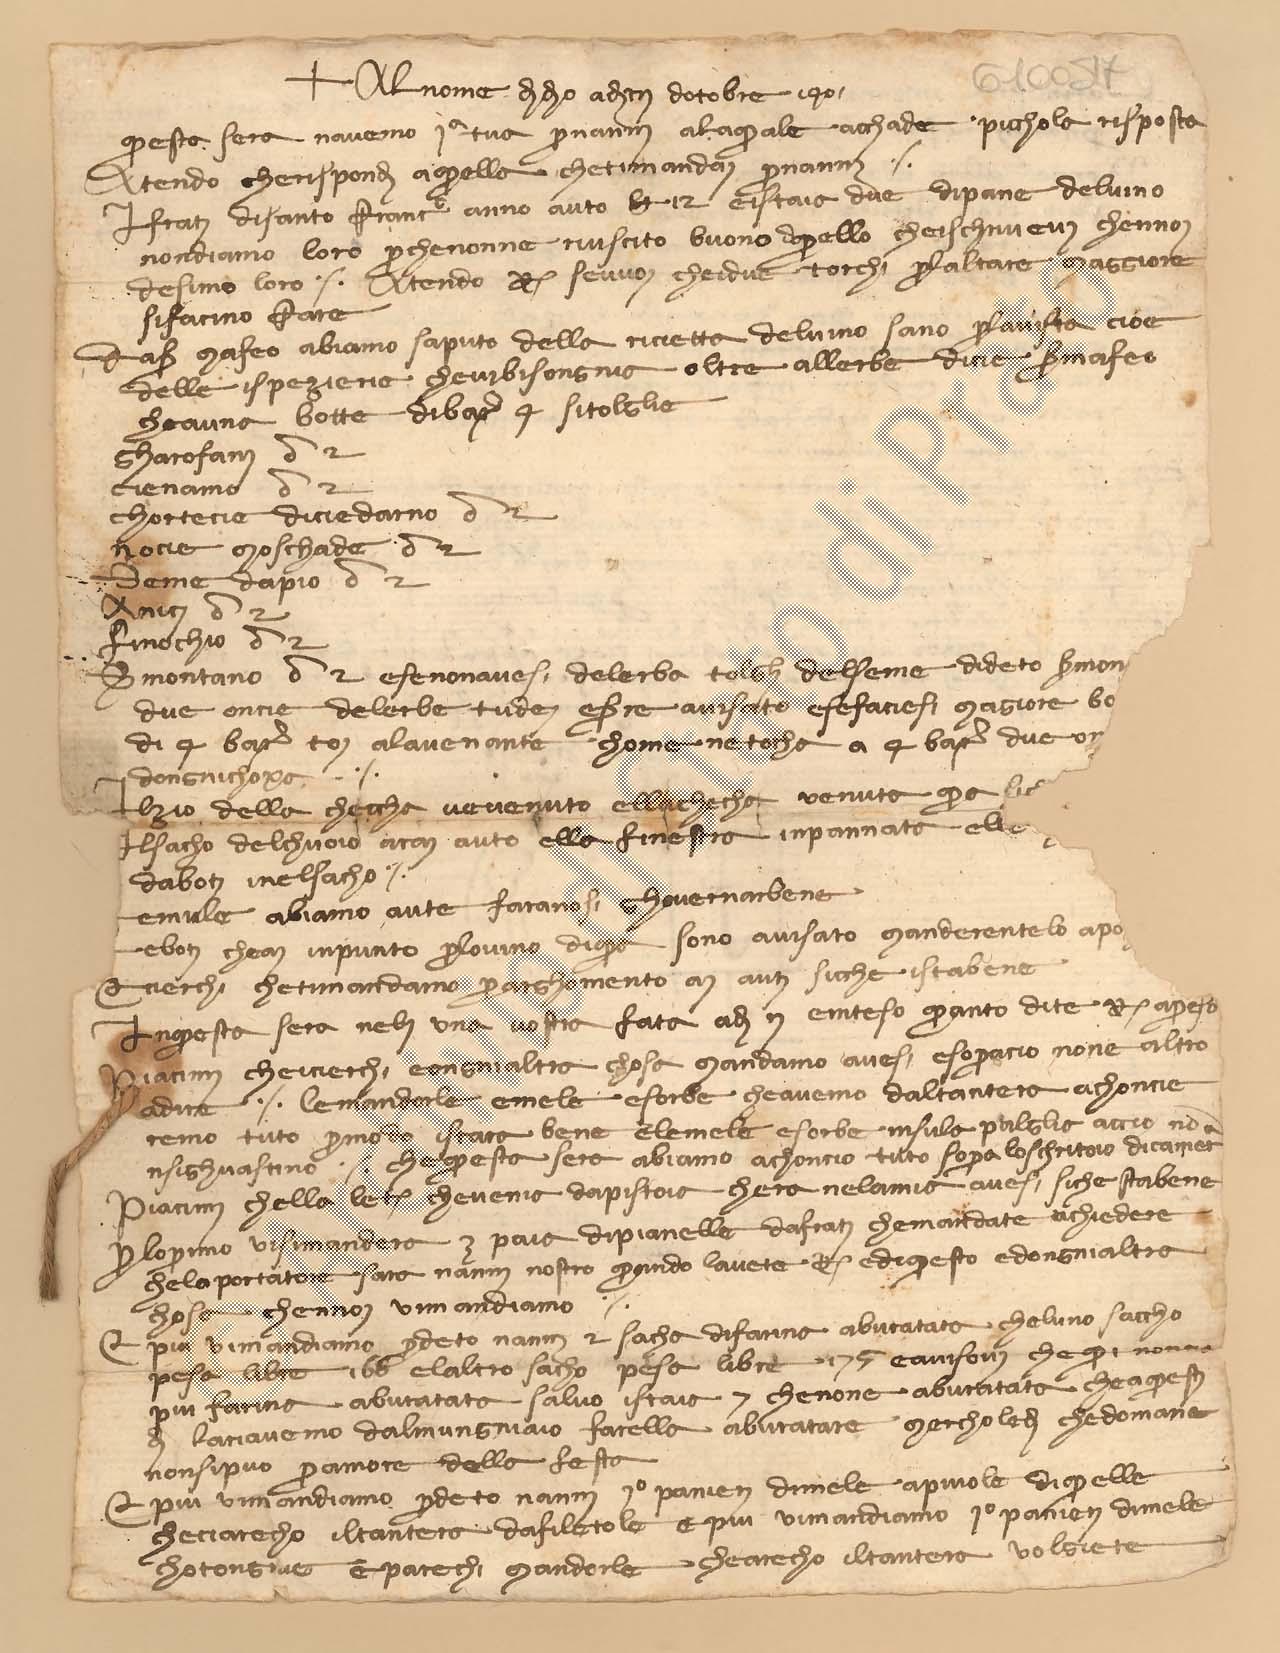 6100517
+ Al nome di dio adi d'otobre
questa sera n'avemo 1a tua per nanni ala quale acchade picchola risposta
Atendo che rispondi a quello che ti mandai per nanni ./.
I frati di santo Francescho anno auto lb 12 e istaia due di pane del vino
non diamo loro perchenonne riuscito buono quello che ischrivevi chennoi
desimo loro ./. Atendo se vuoi che i due torchi per l'altare maggiore
si facino fare
da ser mafeo abiamo saputo della ricietta del vino sano per la vista cioe
delle ispezierie che vi bisongnia oltre all erbe dicie ser mafeo
che a una botte di barili 4 si tolghie
gharofani d 2
cienamo d 2
chortecie di ciedarno d 2
nocie moschade d 2
Seme d'apio d 2
Anici d 2
finochio d 2
Sermontano d 2 e se non avesi del erba del seme di deto sermon
due oncie del erbe tu dei essere avisato e se faciesi magiore bo
di 4 barili toi al avenante chome ne tocha a 4 barili due on
d'ongni chosa ./.
Il zio della checcha v'e venuto e lla checha venuta qua
Il sacho del chuoio arai auto e lla finestra inpannata e lle
daboti in el sacho ./.
e mule abiamo aute faranosi ghovernar bene
e boti che ai in punto per lo vino di qua sono avisato manderentelo apo
E cierchi che ti mandamo per arghomento ai auti sicche istabene
In questa sera n'ebi una vostra fata adi e inteso quanto dite
Piacimi che i cierchi e ongni altra chosa mandamo avesi e sopra cio none altro
a dire ./. le mandorle e mele e sorbe che avemo dal tantera achoncie
remo tuto per modo istara bene e le mele e sorbe in su la palglia accio no
nsi ghuastino ./. che questa sera abiamo achoncio tuto sopra lo schritoio di camera
Piacimi che lla letera che venia da pistoia ch'era nela mia avesi siche sta bene
Per lo primo vi si mandera 3 paia di pianelle da frati che mandate a chiedere
che la portatore sara nanni nostro quando l'avete e di questo e d'ongni altra
chosa chennoi vi mandiamo ./.
E piu vi mandiamo per deto nanni 2 sacha di farina aburatata che l'uno saccho
pesa libre 166 e l'altro sacho pesa libre 175 e avisovi che qui nonn a
piu farina aburatata salvo istaia 7 che none aburatata che a questi
di l'aciavemo dal mungniaio farella aburatare mercholedi che domane
non si puo per amore della festa
E piu vi mandiamo per deto nanni 1o panieri di mele apiuole di quelle
che ci arecho il tantera da filetole e piu vi mandiamo 1o panieri di mele
chotongnie e parechi mandorle che arecho il tantera volgiete